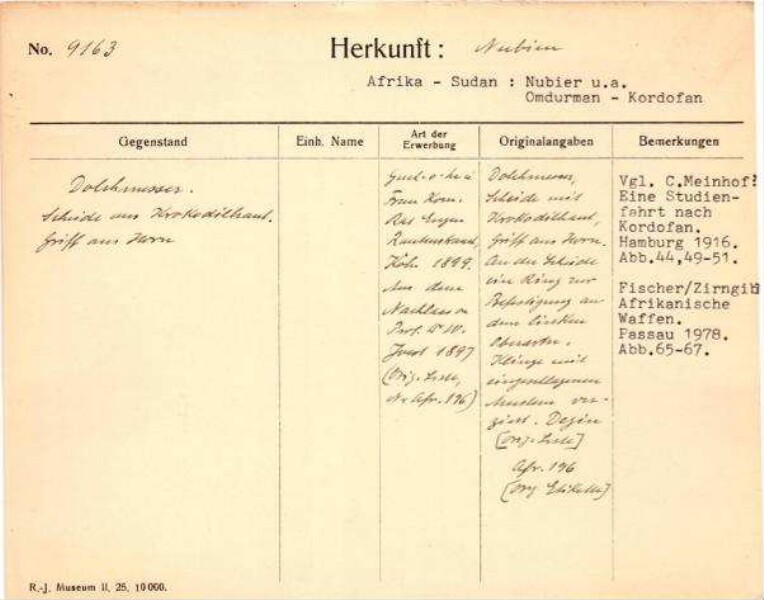 No. 9163
Herkunft: Nubien
Afrika - Sudan : Nubier u.a.
Omdurman - Kordofan
Gegenstand
Einh. Name
Art der Erwerbung
Originalangaben
Bemerkungen
Dolchmesser.
Scheide aus Krokodilhaut.
Griff aus Horn
Frau Kom.
Rat Eugen
Rautenstrauch,
Köln 1899.
Aus dem
Nachlass v.
Prof. Dr. W.
Joest 1897
(Orig. Liste,
Nr. Afr. 196)
Dolchmesser,
Scheide mit
Krokodilhaut,
Griff aus Horn.
An der Scheide
ein Ring zur
Befestigung an
dem linken
Oberarm.
Klinge mit
eingeschlagenen
Mustern ver-
ziert.
[Orig. Liste]
Afr. 196
[Orig. Etikette]
Vgl. C.Meinhof:
Eine Studien-
fahrt nach
Kordofan.
Hamburg 1916.
Abb.44,49-51.
Fischer/Zirngibl
Afrikanische
Waffen.
Passau 1978.
Abb.65-67.
R.-J. Museum II, 25, 10000.